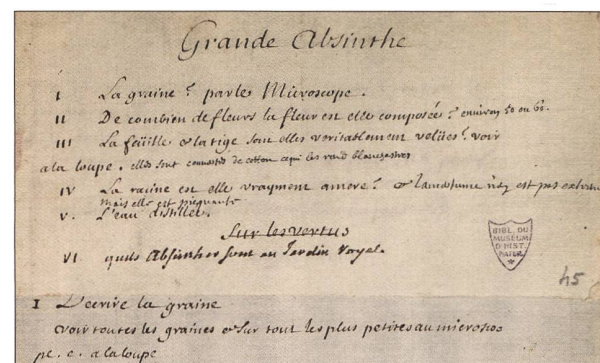 Grande Absinthe
I La graine ? par les Microscope.
II De combien de fleurs la fleur est elle composée ? environ 50 ou 60.
III La feüille & la tige sont elles veritablement velües ? voir
a la loupe. elles sont de cotton ce qui les rend blanchastres
IV La racine est elle vrayment amere ? & l'amertume n'y est pas
mais elle est piequante
V. L'eau distillee.
Sur les vertus
VI quels Absinthes sont au Jardin Royal.
BIBL. DU
MUSÉUM
D'HIST.
NATUR.
45
I Décrire la graine
voir toutes les graines & sur tout les plus petites au microsco
pe. e. a la loupe